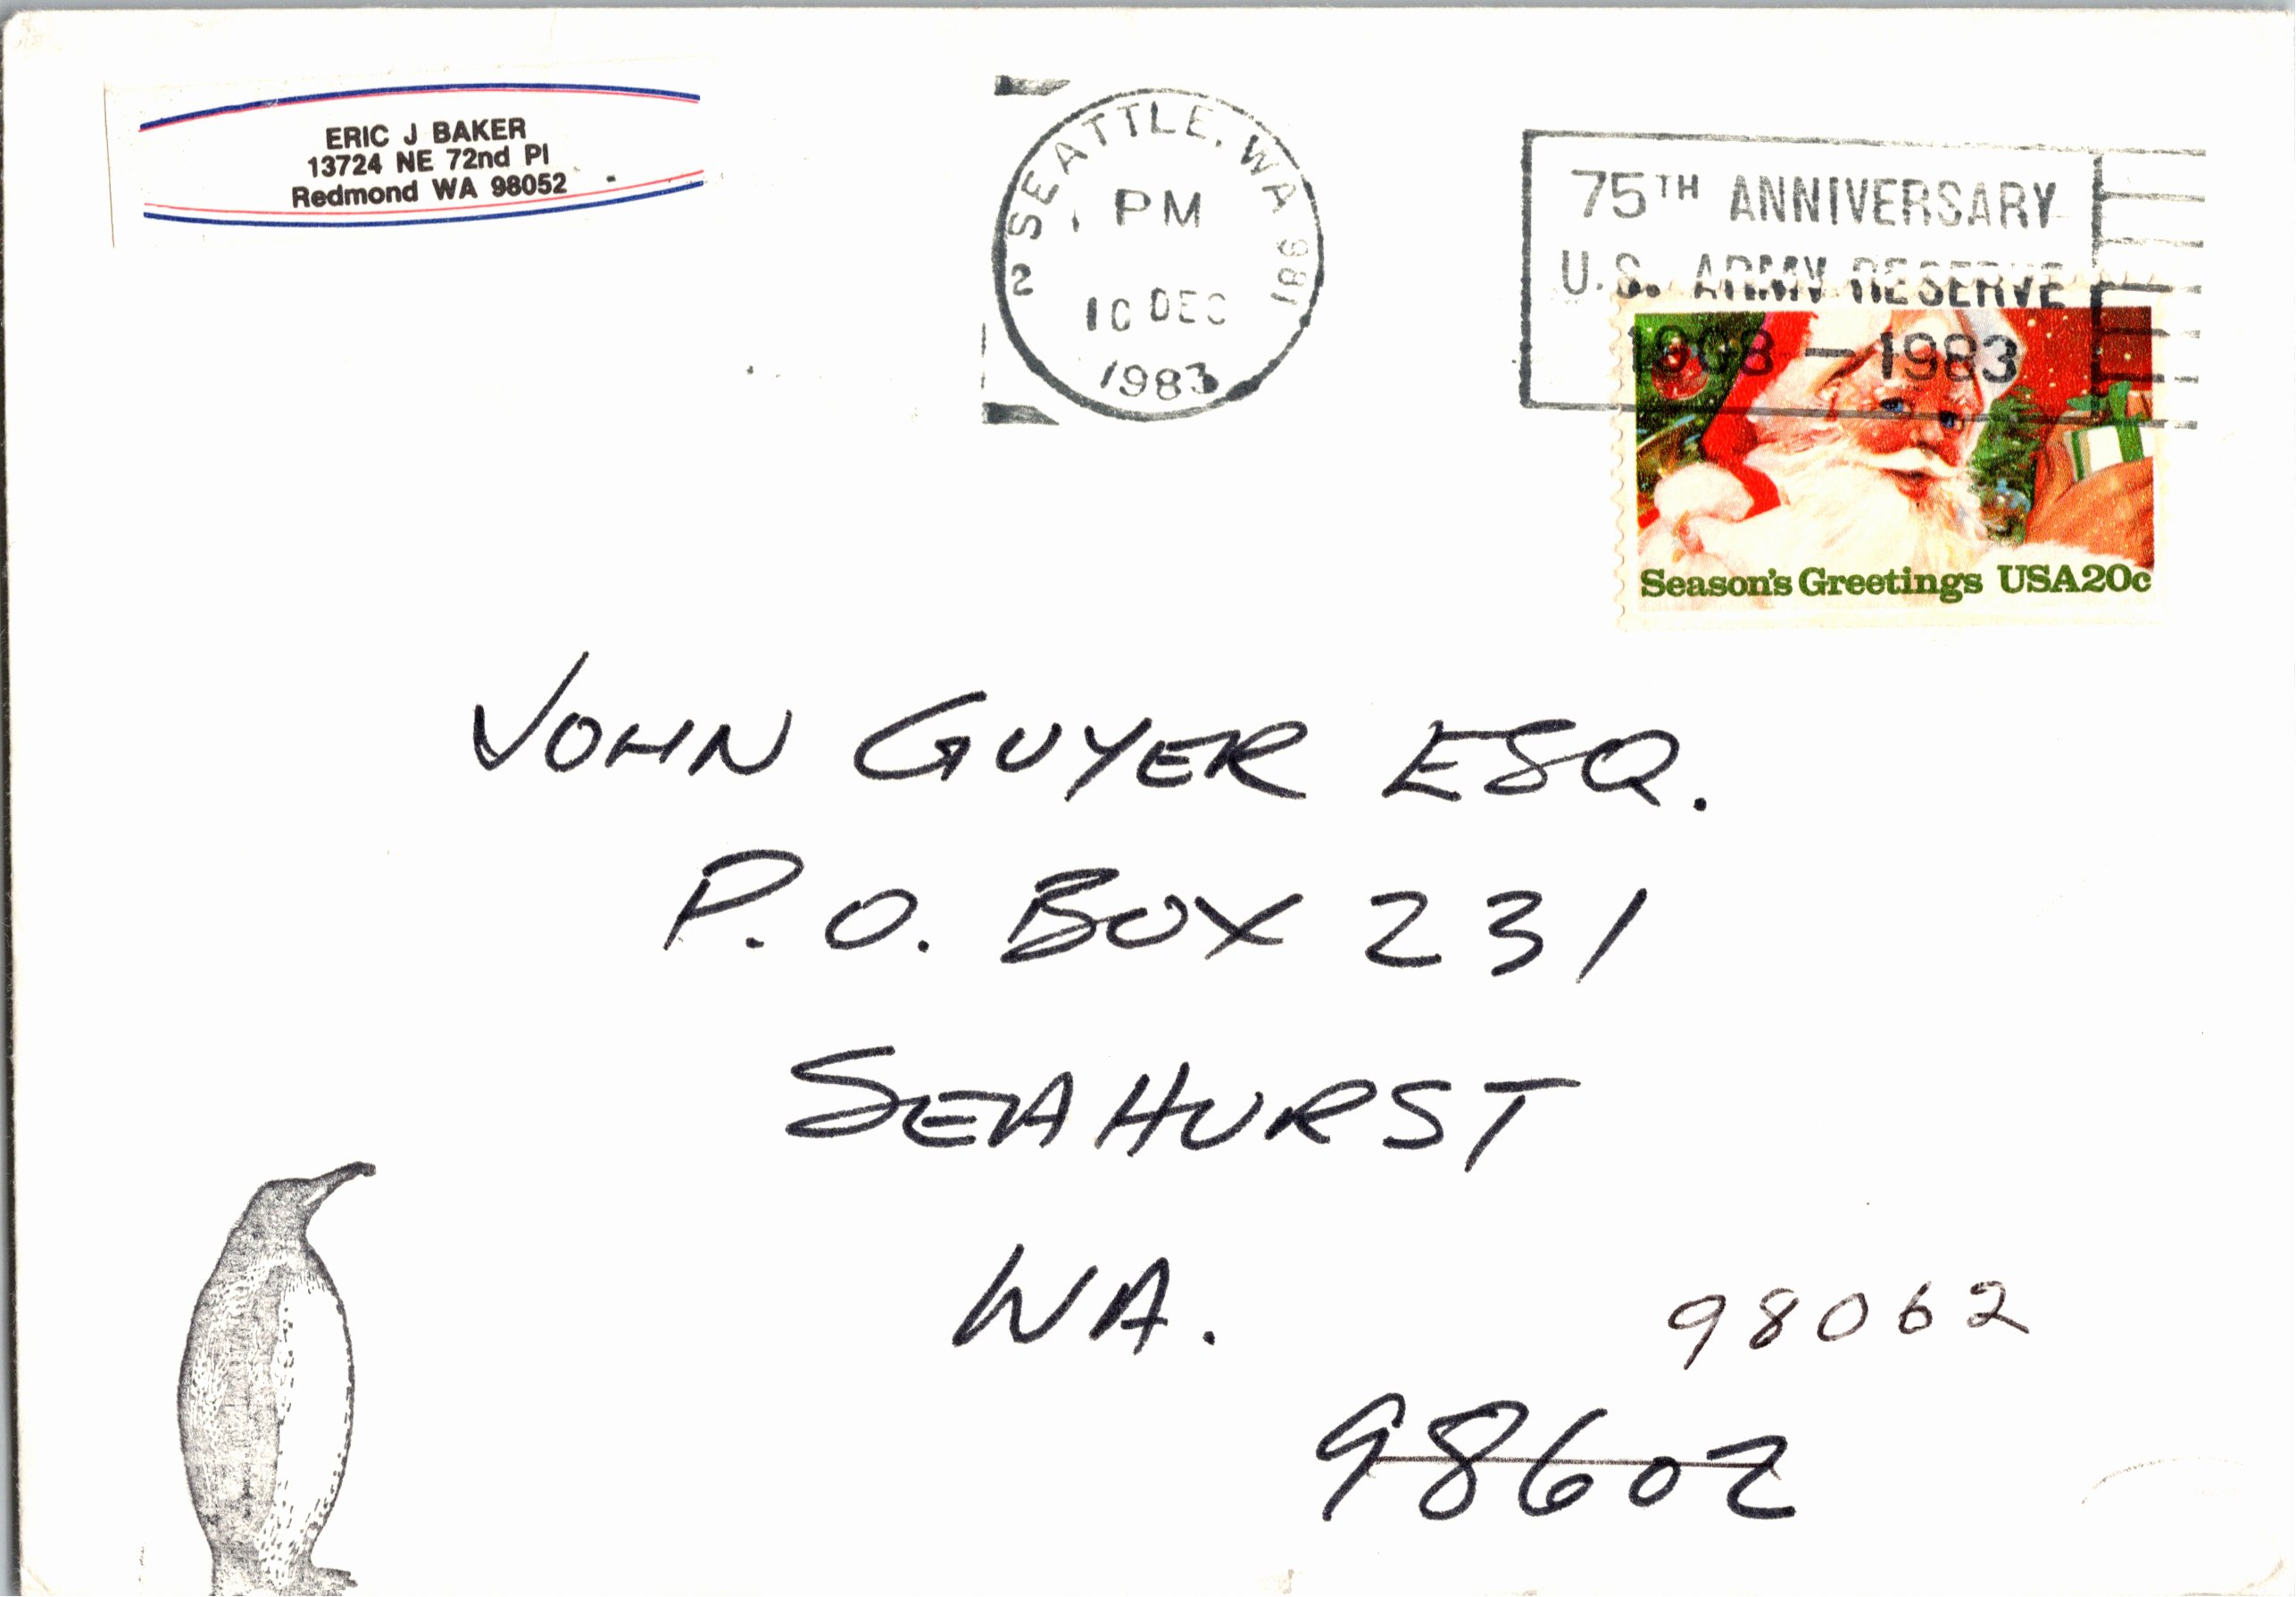 ERIC J BAKER
13724 NE 72nd Pl
Redmond WA 98052
2 SEATTLE, WA 981
PM
10 DEC
1983
75TH ANNIVERSARY
U.S. ARMY RESERVE
1908 - 1983
Season's Greetings USA20c
JOHN GUYER ESQ.
P.O. BOX 231
SEAHURST
WA.
98062
98602